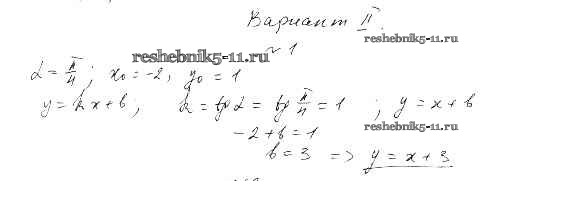 Вариант II.
reshebnik5-11.ru
reshebnik5-11.ru № 1
α = π/4 ; x₀ = -2, y₀ = 1
y = kx + b ; k = tg α = tg π/4 = 1 ; y = x + b
-2 + b = 1 reshebnik5-11.ru
b = 3 => y = x + 3